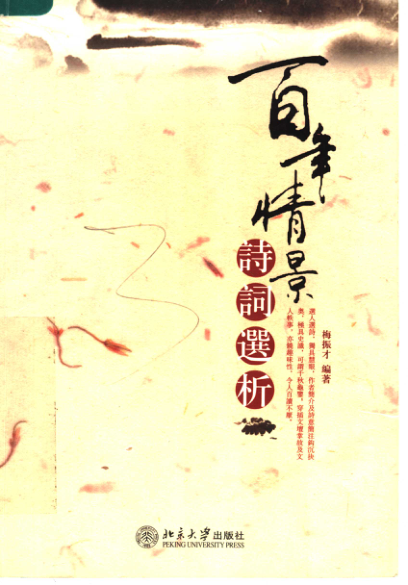 百年情景
詩詞選析
梅振才 編著
選人選詩,獨具慧眼,作者簡介及詩意簡注鈎沉抉
奧,極具史識,可謂千秋龜鑒,穿插文壇掌故及文
人軼事,亦饒趣味性,令人百讀不厭。
北京大学出版社
PEKING UNIVERSITY PRESS